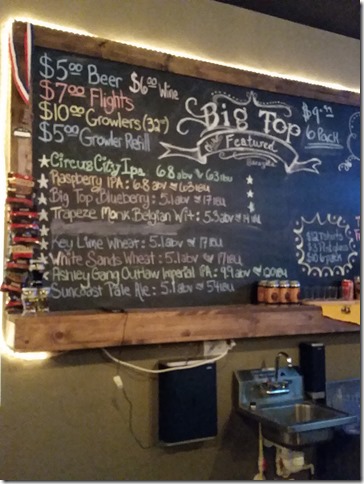 $5.00 Beer $6.00 Wine
$7.00 Flights
$10.00 Growlers (32oz)
$5.00 Growler Refill
Big Top
Featured
$9.99
6 Pack
Circus City Ipa 6.8 abv 63 IBU
Raspberry IPA: 6.8 abv 63 IBU
Big Top Blueberry: 5.1 abv 17 IBU
Trapeze Monk Belgian Wit: 5.3 abv 14 IBU
Key Lime Wheat: 5.1 abv 17 IBU
White Sands Wheat: 5.1 abv 17 IBU
Ashley Gang Outlaw Imperial IPA: 9.9 abv 120 IBU
Suncoast Pale Ale: 5.1 abv 54 IBU